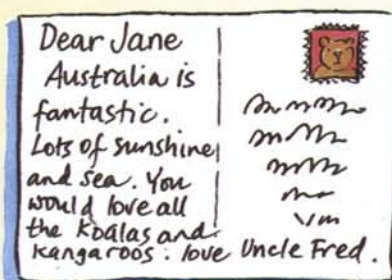 Dear Jane
Australia is
fantastic.
Lots of sunshine
and sea. You
would love all
the Koalas and
kangaroos: love Uncle Fred.